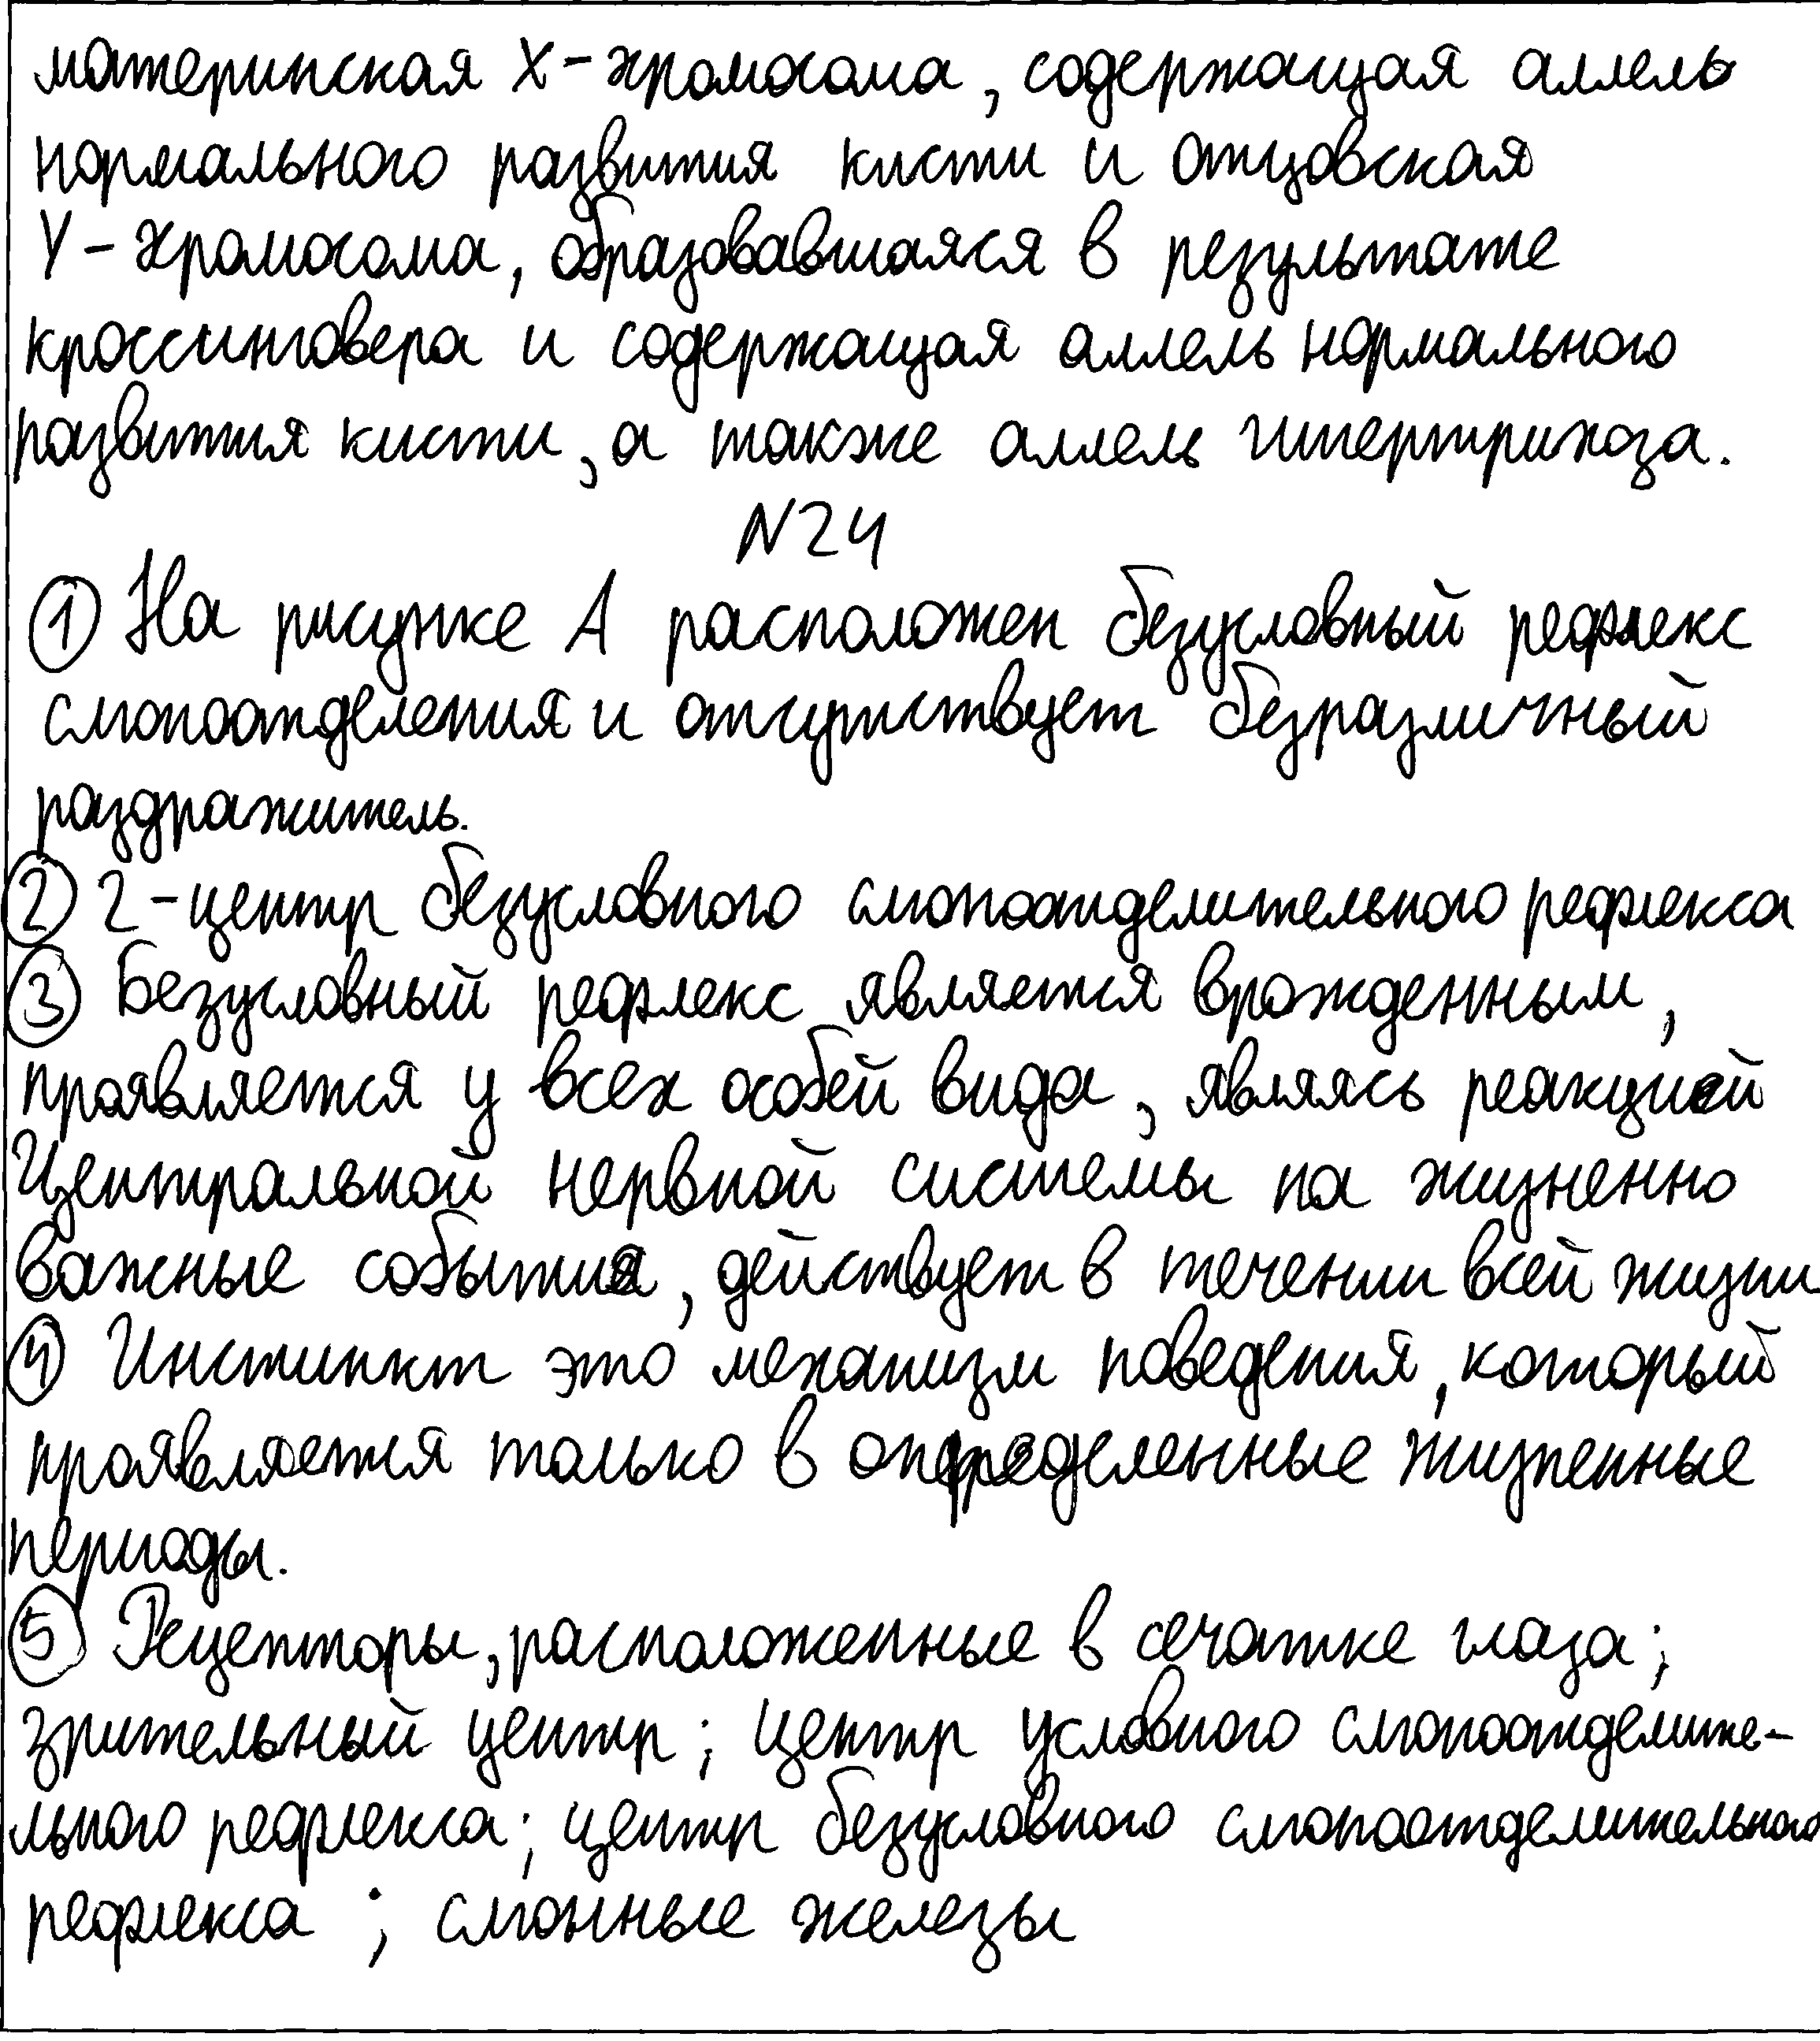 материнская X-хромосома, содержащая аллель
нормального развития кисти и отцовская
Y-хромосома, образовавшаяся в результате
кроссинговера и содержащая аллель нормального
развития кисти, а также аллель гипертрихоза.
N24
① На рисунке А расположен безусловный рефлекс
слюноотделения и отсутствует безразличный
раздражитель.
② 2-центр безусловного слюноотделительного рефлекса
③ Безусловный рефлекс является врожденным,
проявляется у всех особей вида, являясь реакцией
Центральной нервной системы на жизненно
важные события, действует в течении всей жизни
④ Инстинкт это механизм поведения, который
проявляется только в определенные жизненные
периоды.
⑤ Рецепторы, расположенные в сечатке глаза;
зрительный центр; центр условного слюноотделите-
льного рефлекса; центр безусловного слюноотделительного
рефлекса; слюнные железы